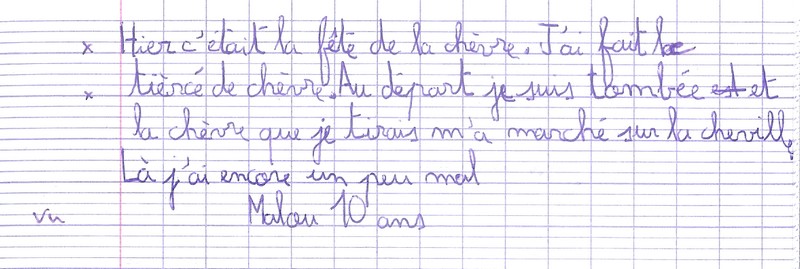 x Hier c'était la fête de la chèvre. J'ai fait le
x tièrcé de chèvre. Au départ je suis tombée et
la chèvre que je tirais m'a marché sur la cheville,
Là j'ai encore un peu mal
vu Malou 10 ans